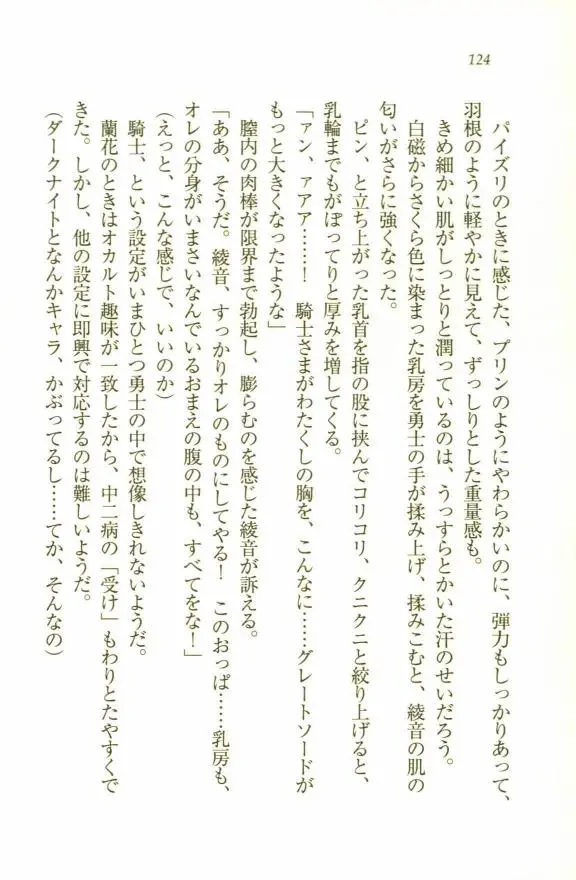 124
パイズリのときに感じた、プリンのようにやわらかいのに、弾力もしっかりあって、
羽根のように軽やかに見えて、ずっしりとした重量感も。
きめ細かい肌がしっとりと潤っているのは、うっすらとかいた汗のせいだろう。
白磁からさくら色に染まった乳房を勇士の手が揉み上げ、揉みこむと、綾音の肌の
匂いがさらに強くなった。
ピン、と立ち上がった乳首を指の股に挟んでコリコリ、クニクニと絞り上げると、
乳輪までもがぽってりと厚みを増してくる。
「ァン、ァアア……！　騎士さまがわたくしの胸を、こんなに……グレートソードが
もっと大きくなったような」
膣内の肉棒が限界まで勃起し、膨らむのを感じた綾音が訴える。
「ああ、そうだ。綾音、すっかりオレのものにしてやる！　このおっぱ……乳房も、
オレの分身がいまさいなんでいるおまえの腹の中も、すべてをな！」
（えっと、こんな感じで、いいのか）
騎士、という設定がいまひとつ勇士の中で想像しきれないようだ。
蘭花のときはオカルト趣味が一致したから、中二病の「受け」もわりとたやすくで
きた。しかし、他の設定に即興で対応するのは難しいようだ。
（ダークナイトとなんかキャラ、かぶってるし……てか、そんなの）